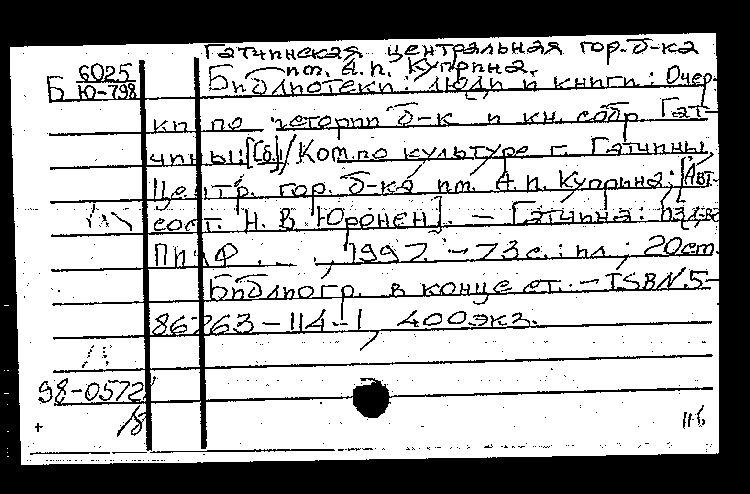 Гатчинская центральная гор. б-ка
им. А.П. Куприна.
6025
Б Ю-798
Библиотеки: люди и книги: Очер-
ки по истории б-к и кн. собр. Гат-
чины: [Сб]/Ком. по культуре г. Гатчины,
Центр. гор. б-ка им. А.П. Куприна; [Авт.-
сост. Н.В. Юронен]. - Гатчина: изд-во
ПИЯФ, 1997. - 73с.: ил.; 20см.
Библиогр. в конце ст. - ISBN.5-
86763-114-1, 400экз.
98-0572
/8
+
11-б